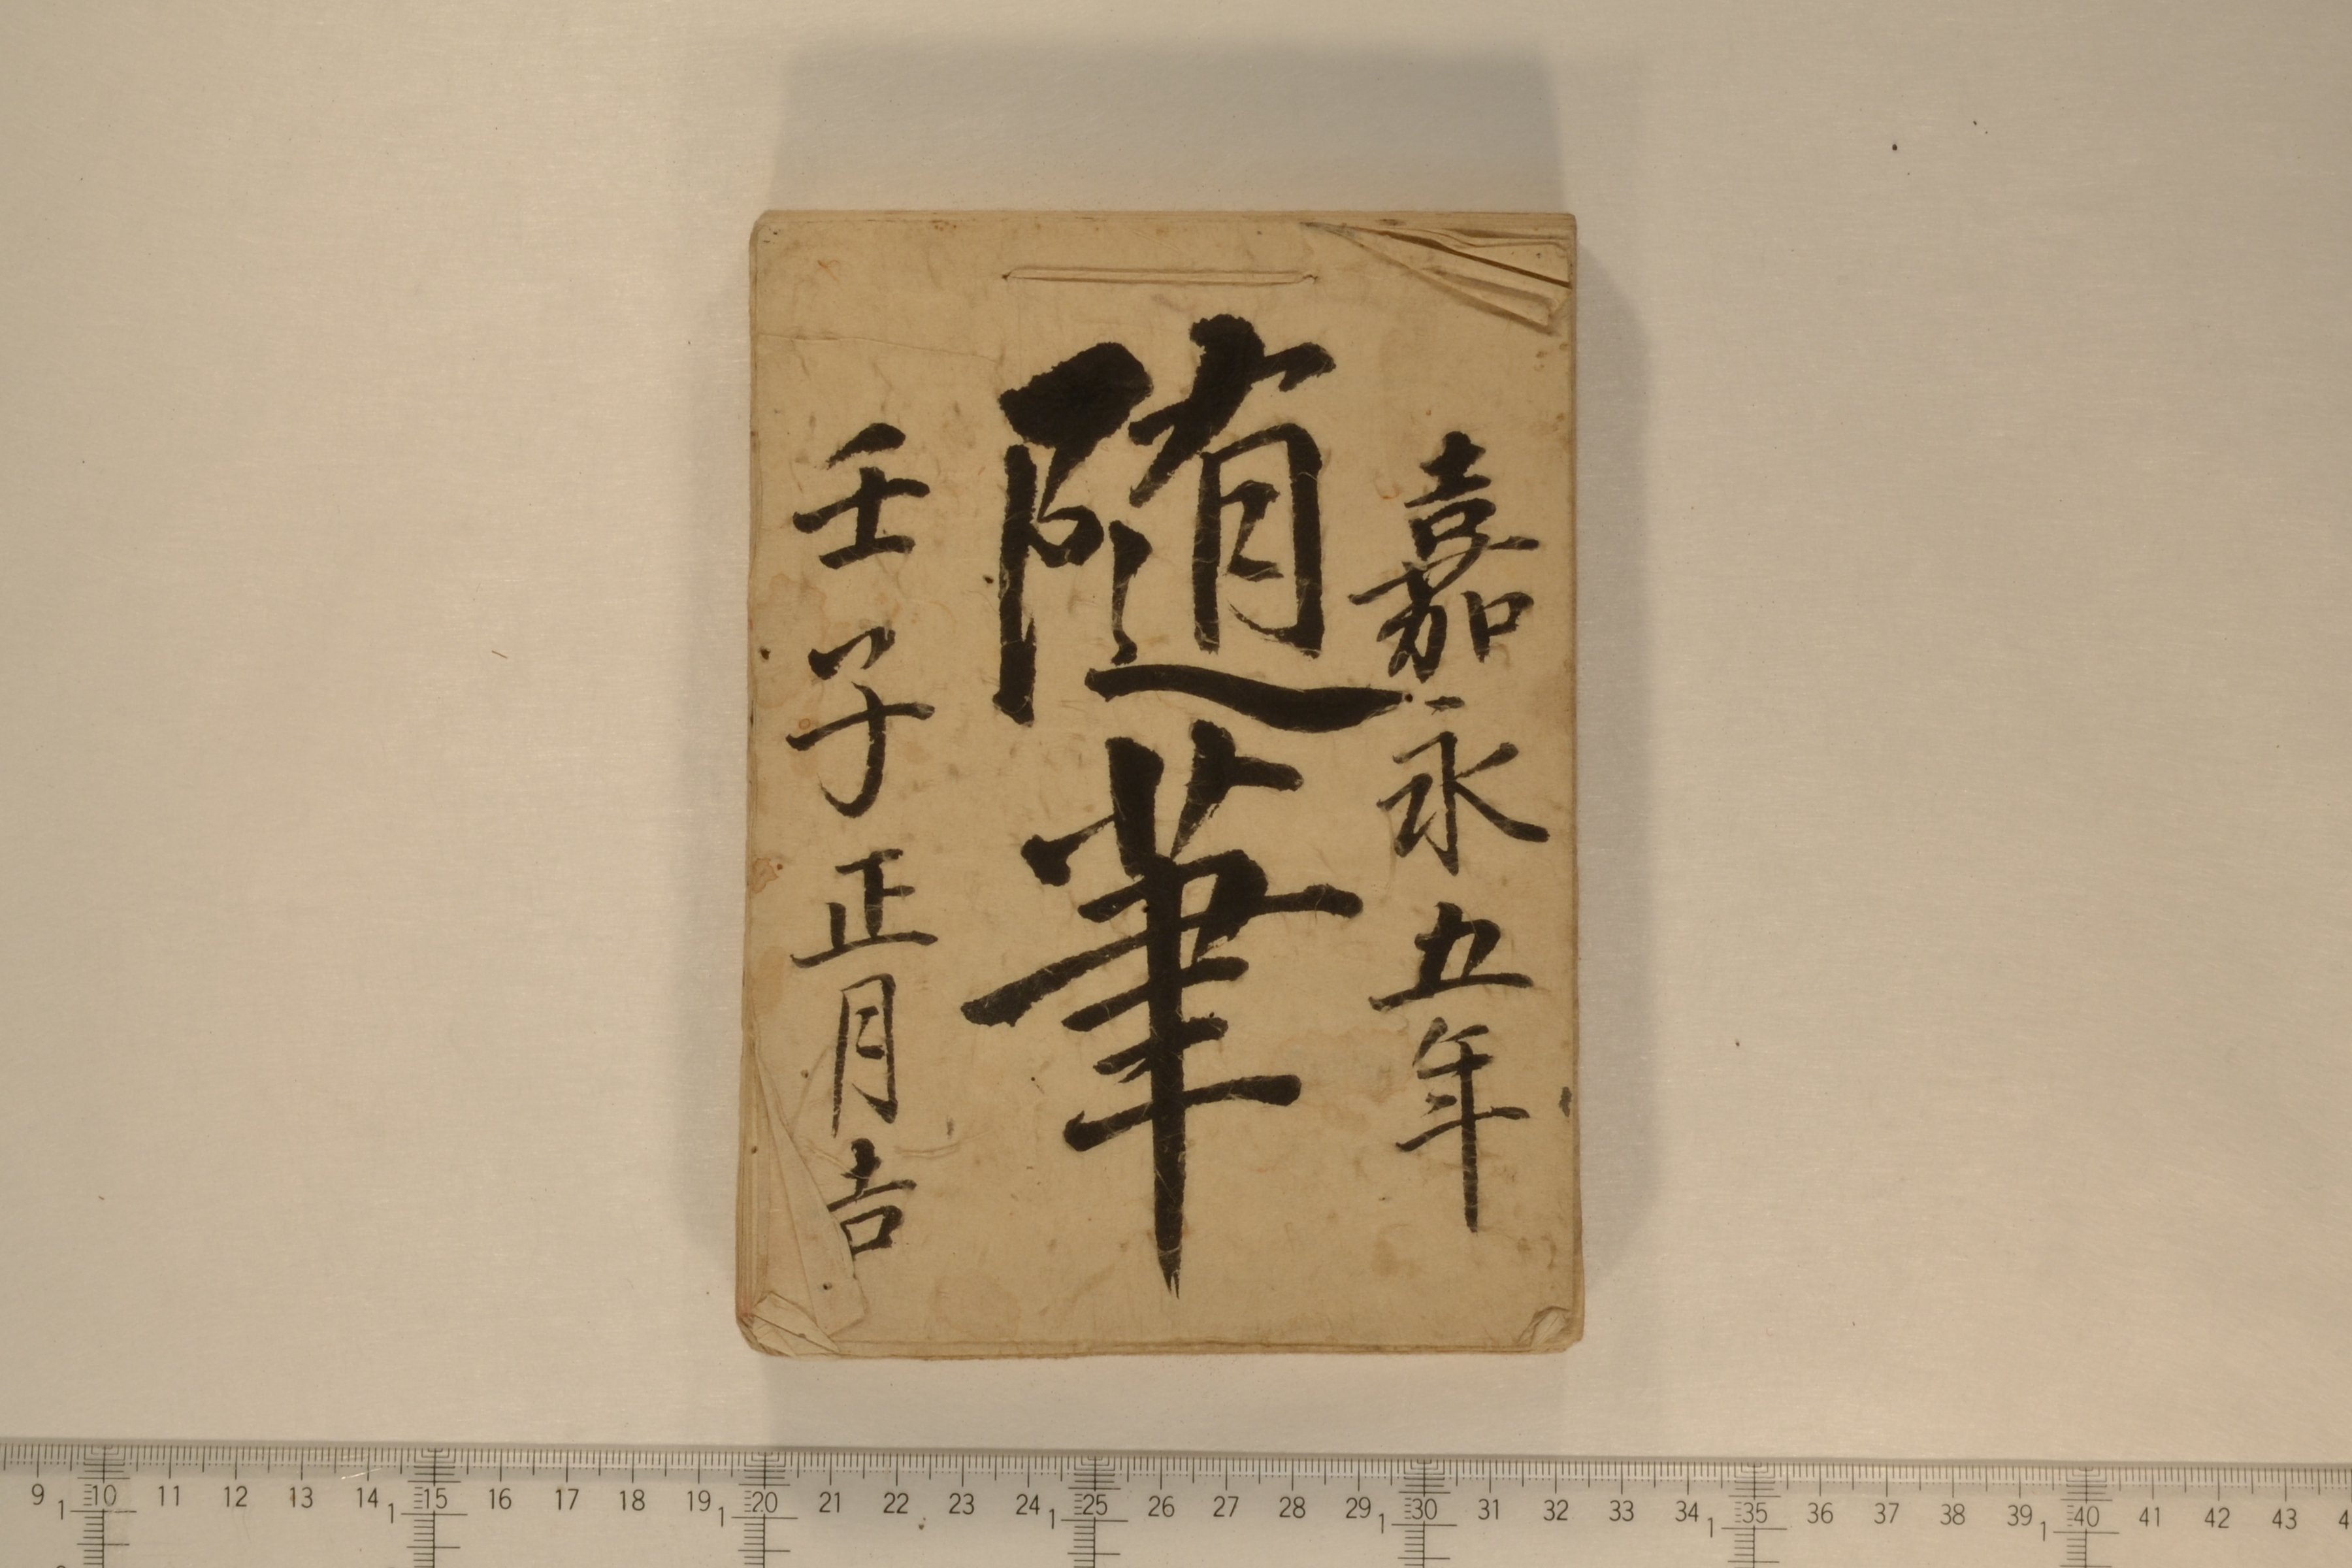 嘉永五年
随筆
壬子正月吉
9 10 11 12 13 14 15 16 17 18 19 20 21 22 23 24 25 26 27 28 29 30 31 32 33 34 35 36 37 38 39 40 41 42 43
1 1 1 1 1 1 1